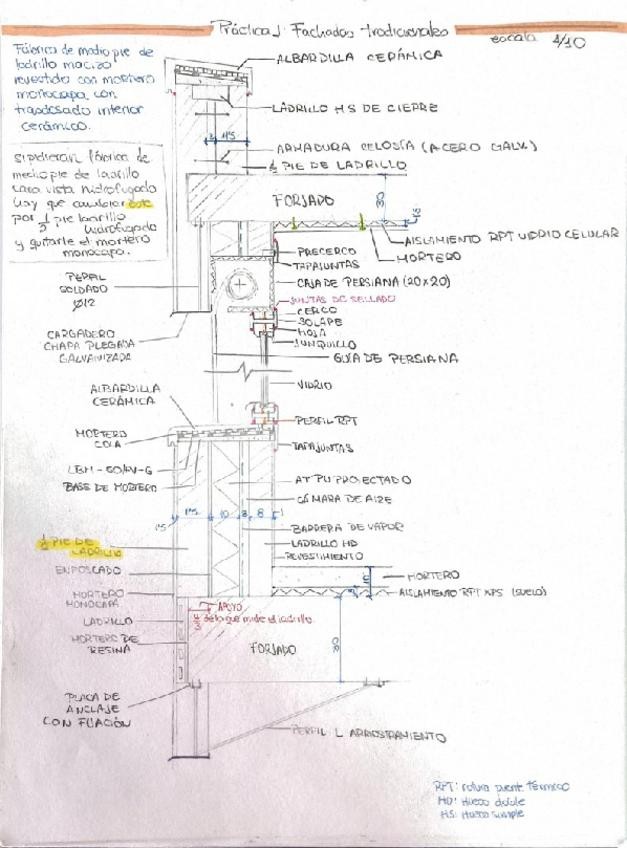 Práctica 1 Fachadas tradicionales
escala 1/10
Fábrica de medio pie de
ladrillo macizo
revestido con mortero
monocapa, con
trasdosado interior
cerámico.
si pidieran fábrica de
medio pie de ladrillo
cara vista hidrofugado
hay que cambiar este
por 1/2 pie ladrillo
hidrofugado
y quitarle el mortero
monocapa.
ALBARDILLA CERÁMICA
LADRILLO HS DE CIERRE
11'5
ARMADURA CELOSÍA (ACERO GALV.)
1/2 PIE DE LADRILLO
FORJADO
30
AISLAMIENTO RPT VIDRIO CELULAR
MORTERO
PRECERCO
TAPAJUNTAS
CAJA DE PERSIANA (20x20)
JUNTAS DE SELLADO
CERCO
SOLAPE
HOJA
JUNQUILLO
GUÍA DE PERSIANA
VIDRIO
PERFIL RPT
TAPAJUNTAS
PERFIL
SOLDADO
Ø12
CARGADERO
CHAPA PLEGADA
GALVANIZADA
ALBARDILLA
CERÁMICA
MORTERO
COLA
LBM-50/FV-G
BASE DE MORTERO
AT PU PROYECTADO
CÁMARA DE AIRE
1'5 11'5 10 3 8 1
BARRERA DE VAPOR
LADRILLO HD
REVESTIMIENTO
1/2 PIE DE
LADRILLO
ENFOSCADO
MORTERO
MONOCAPA
LADRILLO
MORTERO DE
RESINA
MORTERO
AISLAMIENTO RPT XPS (SUELO)
APOYO
de lo que mide el ladrillo.
FORJADO
30
PLACA DE
ANCLAJE
CON FIJACIÓN
PERFIL L ARRIOSTRAMIENTO
RPT: rotura puente térmico
HD: Hueco doble
HS: Hueco simple